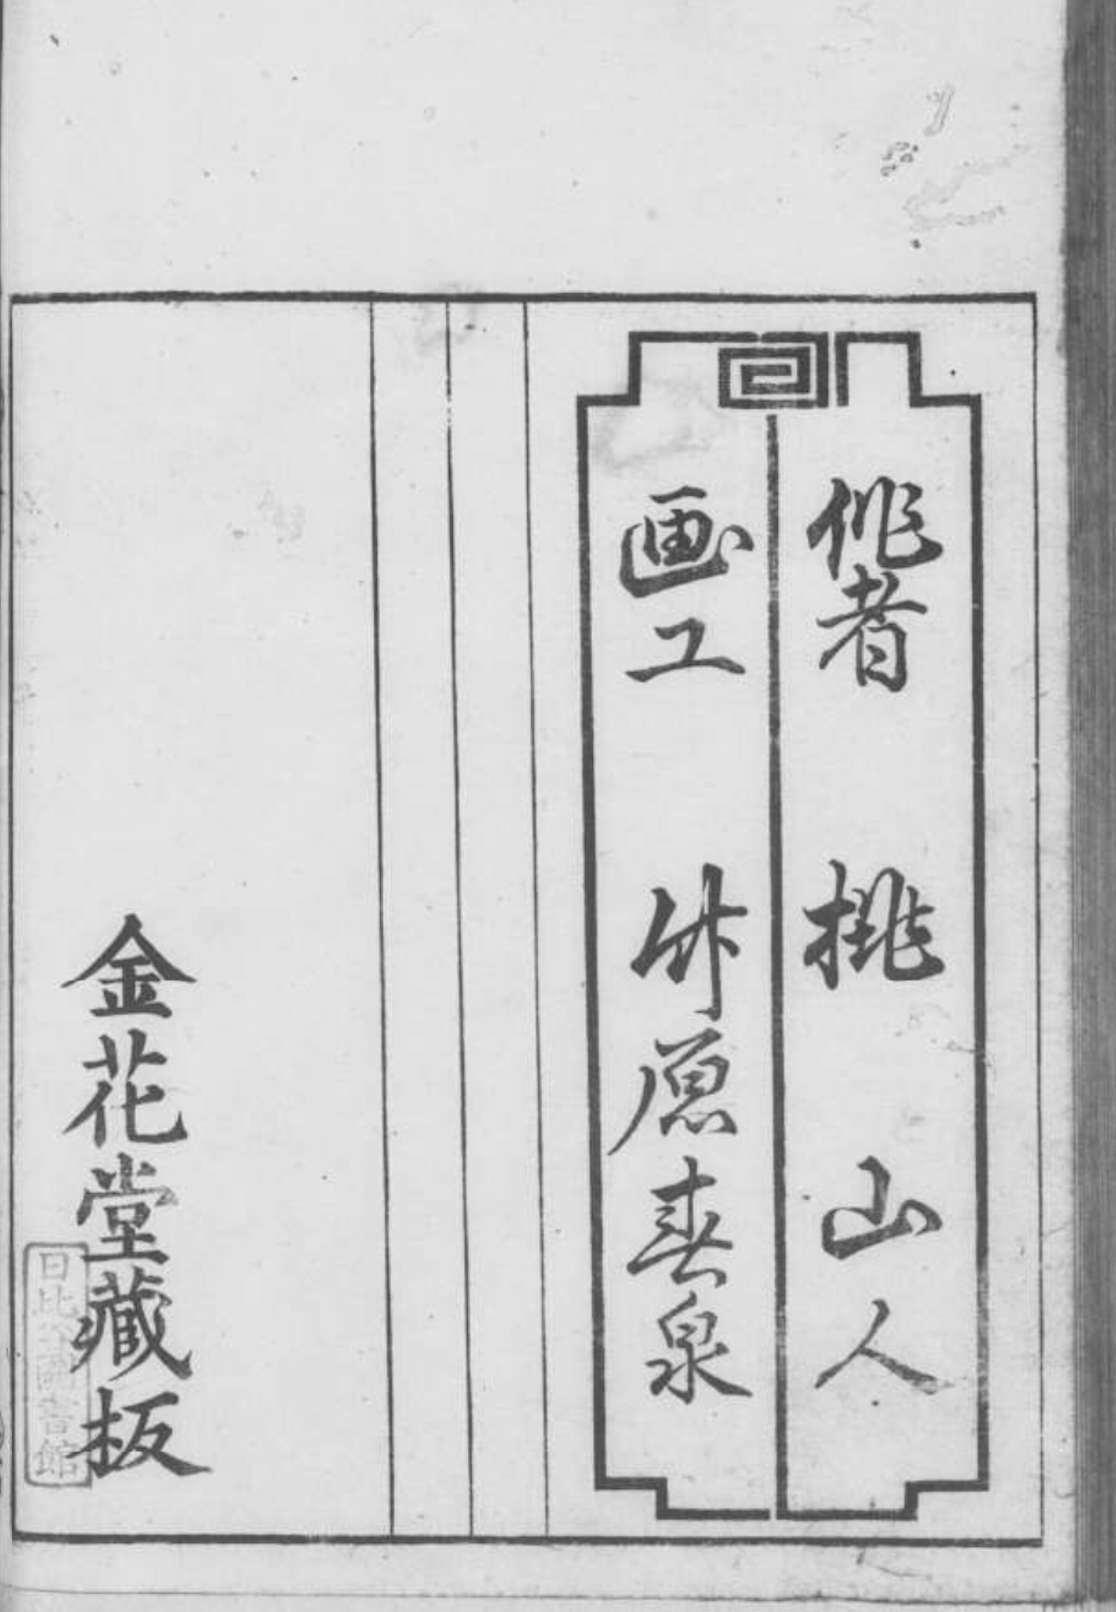 作者 桃山人
画工 竹原春泉
金花堂藏板
日比谷圖書館